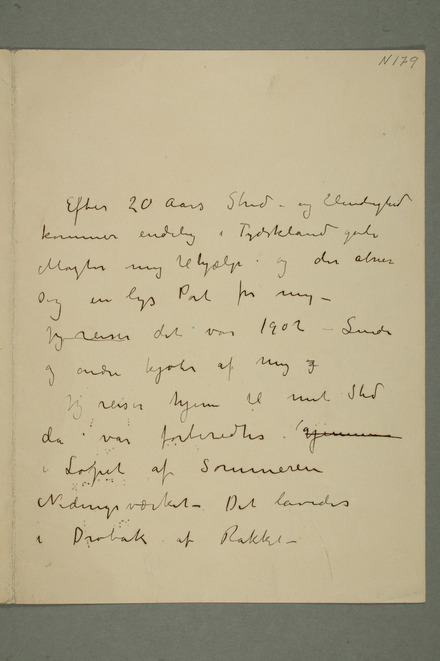 N 179
Efter 20 Aars Strid – og Elendighed
kommer endelig i Tydskland gode
Magter mig til hjælp – og der abner
sig en lys Port for mig –
Jeg reiser det var 1902 – Linde
og andre kjøber af mig
Jeg reiser hjem til mit Sted
da var forberedtes gjennem
i Løpet af Sommeren
Nidingsværket – Det lavedes
i Drøbak af Pakket –